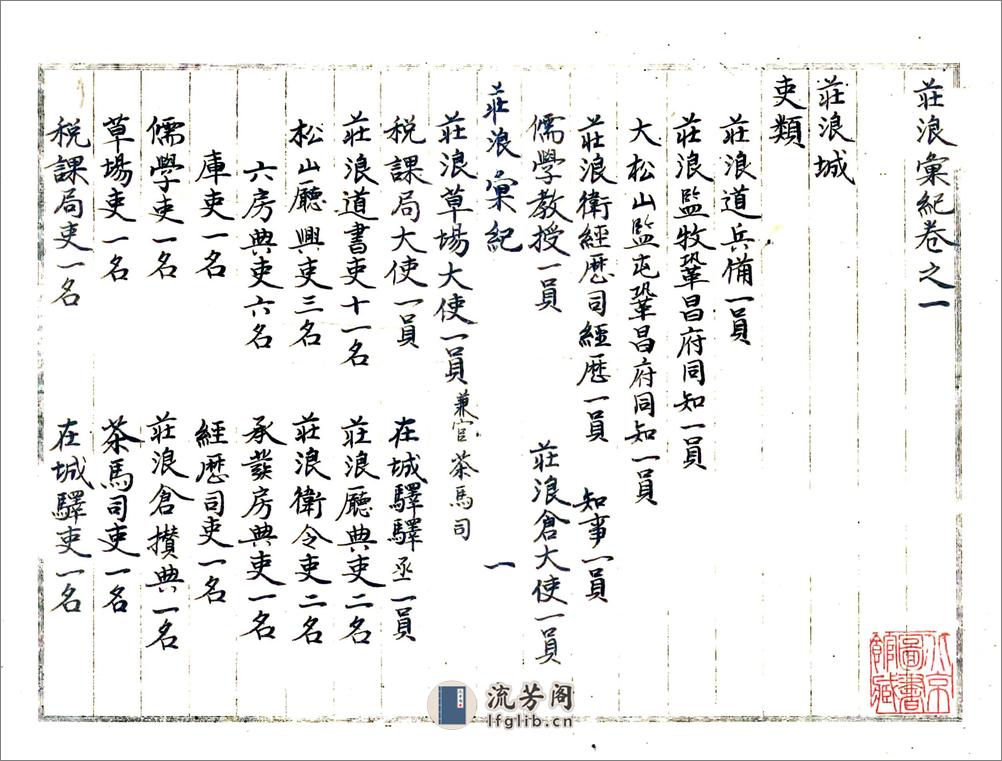 莊浪彙紀卷之一
莊浪城
吏類
莊浪道兵備一員
莊浪監牧鞏昌府同知一員
大松山監屯鞏昌府同知一員
莊浪衛經歷司經歷一員 知事一員
儒學教授一員 莊浪倉大使一員
莊浪彙紀 一
莊浪草場大使一員 兼官茶馬司
税課局大使一員 在城驛驛丞一員
莊浪道書吏十一名 莊浪廳典吏二名
松山廳興吏三名 莊浪衛令吏二名
六房典吏六名 承發房典吏一名
庫吏一名 經歷司吏一名
儒學吏一名 莊浪倉攢典一名
草場吏一名 茶馬司吏一名
税課局吏一名 在城驛吏一名
北京圖書館藏
流芳阁
lfglib.cn